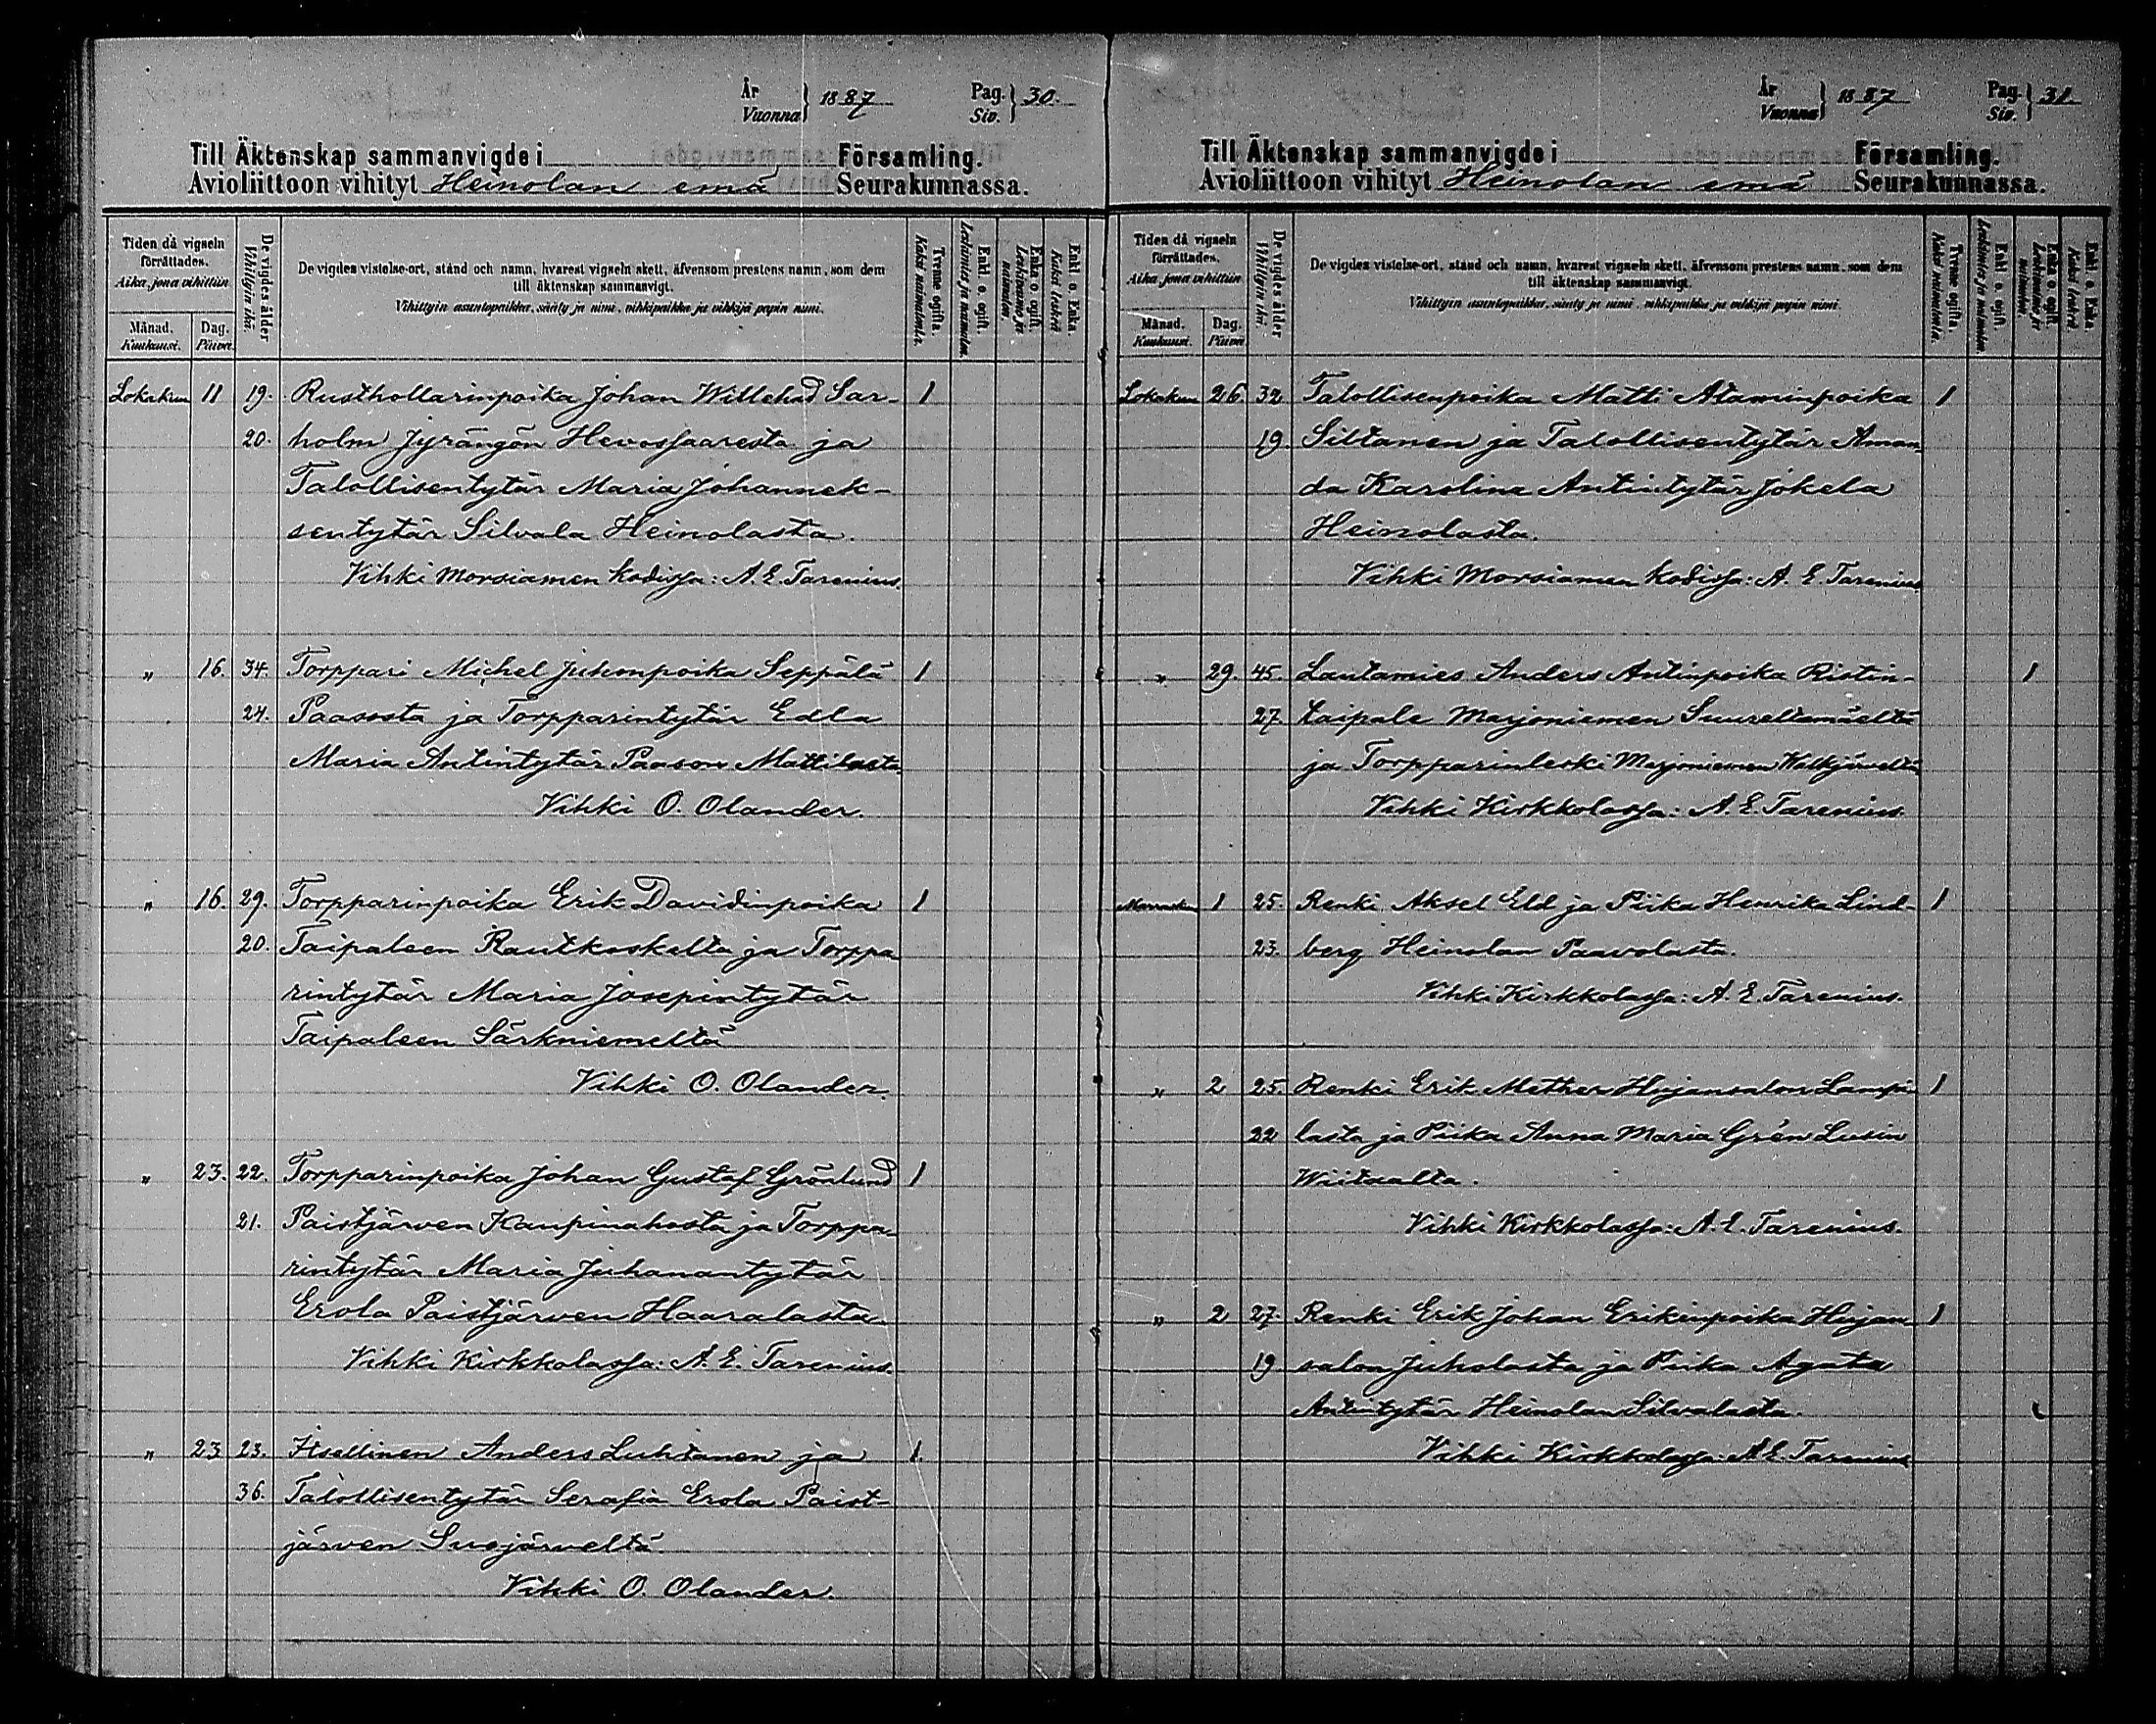 År
Vuonna } 1887 Pag.
Siv. } 30.
Till Äktenskap sammanvigde i Församling.
Avioliittoon vihityt Heinolan emä Seurakunnassa.
Tiden då vigseln förrättades.
Aika, jona vihittiin
Månad.
Kuukausi.
Dag.
Päivä.
De vigdes ålder
Vihittyin ikä.
De vigdes vistelse-ort, stånd och namn, hvarest vigseln skett, äfvensom prestens namn, som dem
till äktenskap sammanvigt.
Vihittyin asuntopaikka, sääty ja nimi, vihkipaikka ja vihkijä papin nimi.
Tvenne ogifta.
Kaksi naimatonta.
Enkl. o. ogift.
Leskimies ja naimaton.
Enka o. ogift.
Leskivaimo ja naimaton.
Enkl. o. Enka
Kaksi leskeä
Lokakuu 11 19. Rusthollarinpoika Johan Willehad Sar- 1
20. holm Jyrängön Hevossaaresta ja
Talollisentytär Maria Johannek-
sentytär Silvala Heinolasta.
Vihki Morsiamen kodissa: A. E. Tarenius.
" 16. 34. Torppari Michel Juhonpoika Seppälä 1
24. Paasosta ja Torpparintytär Edla
Maria Antintytär Paason Mattilasta.
Vihki O. Olander.
" 16. 29. Torpparinpoika Erik Davidinpoika 1
20. Taipaleen Rautkoskelta ja Torppa
rintytär Maria Josepintytär
Taipaleen Särkniemeltä
Vihki O. Olander.
" 23. 22. Torpparinpoika Johan Gustaf Grönlund 1
21. Paistjärven Kaupinahosta ja Torppa-
rintytär Maria Juhanantytär
Erola Paistjärven Haaralasta.
Vihki Kirkkolassa: A. E. Tarenius.
" 23 23. Itsellinen Anders Luhtanen ja 1.
36. Talollisentytär Serafia Erola Paist-
järven Suojärveltä.
Vihki O. Olander.
År
Vuonna } 1887 Pag.
Siv. } 31
Till Äktenskap sammanvigde i Församling.
Avioliittoon vihityt Heinolan emä Seurakunnassa.
Tiden då vigseln förrättades.
Aika, jona vihittiin
Månad.
Kuukausi.
Dag.
Päivä
De vigdes ålder
Vihittyin ikä.
De vigdes vistelse-ort, stånd och namn, hvarest vigseln skett, äfvensom prestens namn, som dem
till äktenskap sammanvigt.
Vihittyin asuntopaikka, sääty ja nimi, vihkipaikka ja vihkijä papin nimi.
Tvenne ogifta.
Kaksi naimatonta.
Enkl. o. ogift.
Leskimies ja naimaton.
Enka o. ogift.
Leskivaimo ja naimaton.
Enkl. o. Enka
Kaksi leskeä
Lokakuu 26 32 Talollisenpoika Matti Ataminpoika 1
19 Siltanen ja Talollisentytär Aman
da Karolina Antintytär Jokela
Heinolasta.
Vihki Morsiamen kodissa: A. E. Tarenius
" 29. 45. Lautamies Anders Antinpoika Ristin- 1
27. taipale Marjoniemen Suureltamäeltä
ja Torpparinleski Marjoniemen Walkjärveltä
Vihki Kirkkolassa: A. E. Tarenius.
Marraskuu 1 25. Renki Aksel Eld ja Piika Henrika Lind- 1
23. berg Heinolan Paavolasta.
Vihki Kirkkolassa: A. E. Tarenius.
" 2 25. Renki Erik Mether Hujansalon Lampi 1
22 lasta ja Piika Anna Maria Grén Lusin
Wiitaalta.
Vihki Kirkkolassa: A. E. Tarenius.
" 2 27. Renki Erik Johan Erikinpoika Hujan 1
19 salon Juholasta ja Piika Agata
Antintytär Heinolan Silvalasta.
Vihki Kirkkolassa: A. E. Tarenius